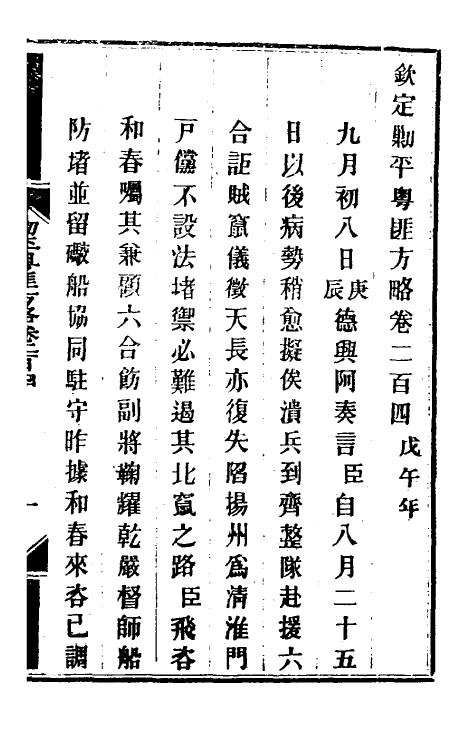 欽定勦平粵匪方略卷二百四戊午年
九月初八日庚辰德興阿奏言臣自八月二十五
日以後病勢稍愈擬俟潰兵到齊整隊赴援六
合詎賊竄儀徵天長亦復失陷揚州爲清淮門
戸儻不設法堵禦必難遏其北竄之路臣飛咨
和春囑其兼顧六合飭副將鞠耀乾嚴督師船
防堵並留礮船協同駐守昨據和春來咨已調
一